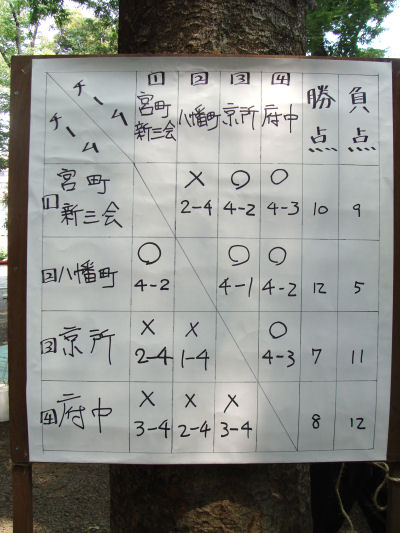 チーム チーム 1 宮町新三会 2 八幡町 3 京所 4 府中 勝点 負点
1 宮町新三会 × 2-4 ○ 4-2 ○ 4-3 10 9
2 八幡町 ○ 4-2 ○ 4-1 ○ 4-2 12 5
3 京所 × 2-4 × 1-4 ○ 4-3 7 11
4 府中 × 3-4 × 2-4 × 3-4 8 12